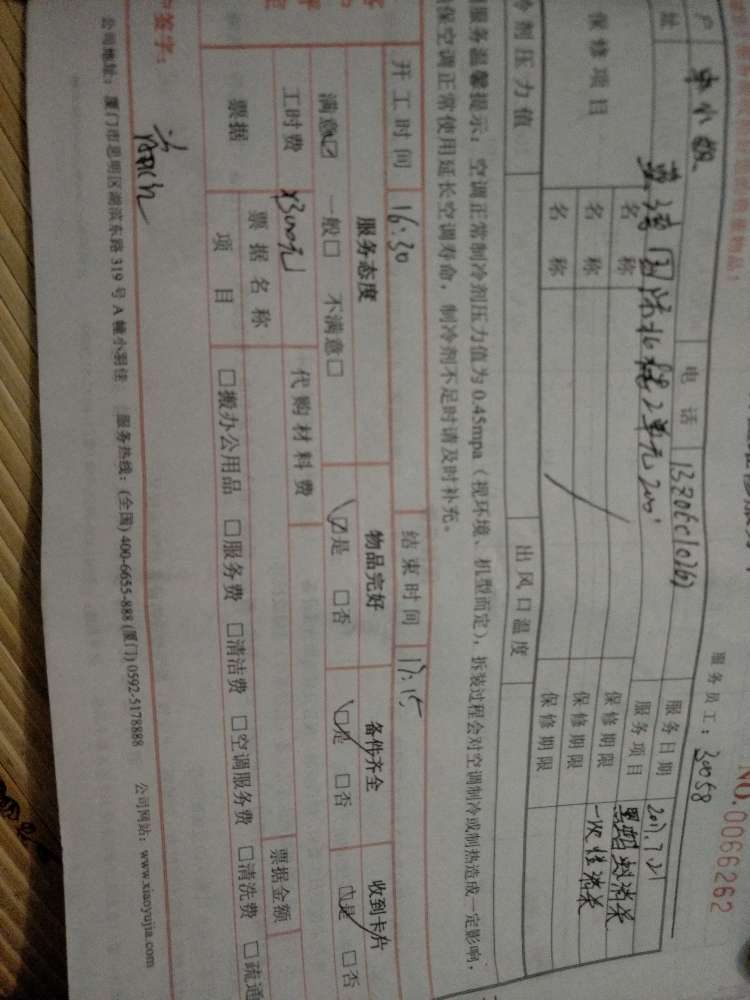 NO.0066262
服务员工：30058
户 电话 服务日期 2017.7.21
址 国际北楼2单元200 服务项目 黑蚂蚁消杀
保修项目 名称 保修期限 一次性消杀
名称 保修期限
名称 保修期限
冷剂压力值 出风口温度
服务温馨提示：空调正常制冷剂压力值为0.45mpa（视环境、机型而定），拆装过程会对空调制冷或制热造成一定影响，
保空调正常使用延长空调寿命，制冷剂不足时请及时补充。
开工时间 16:30 结束时间 17:15
服务态度 物品完好 备件齐全 收到卡片
满意☑ 一般□ 不满意□ ☑是 □否 ☑是 □否 ☑是 □否
工时费 ¥300元 代购材料费 票据金额
票据 票据名称 □搬办公用品 □服务费 □清洁费 □空调服务费 □清洗费 □疏通
项目
签字：
公司地址：厦门市思明区湖滨东路319号A幢小羽佳 服务热线：(全国) 400-6655-888 (厦门) 0592-5178888 公司网站：www.xiaoyujia.com